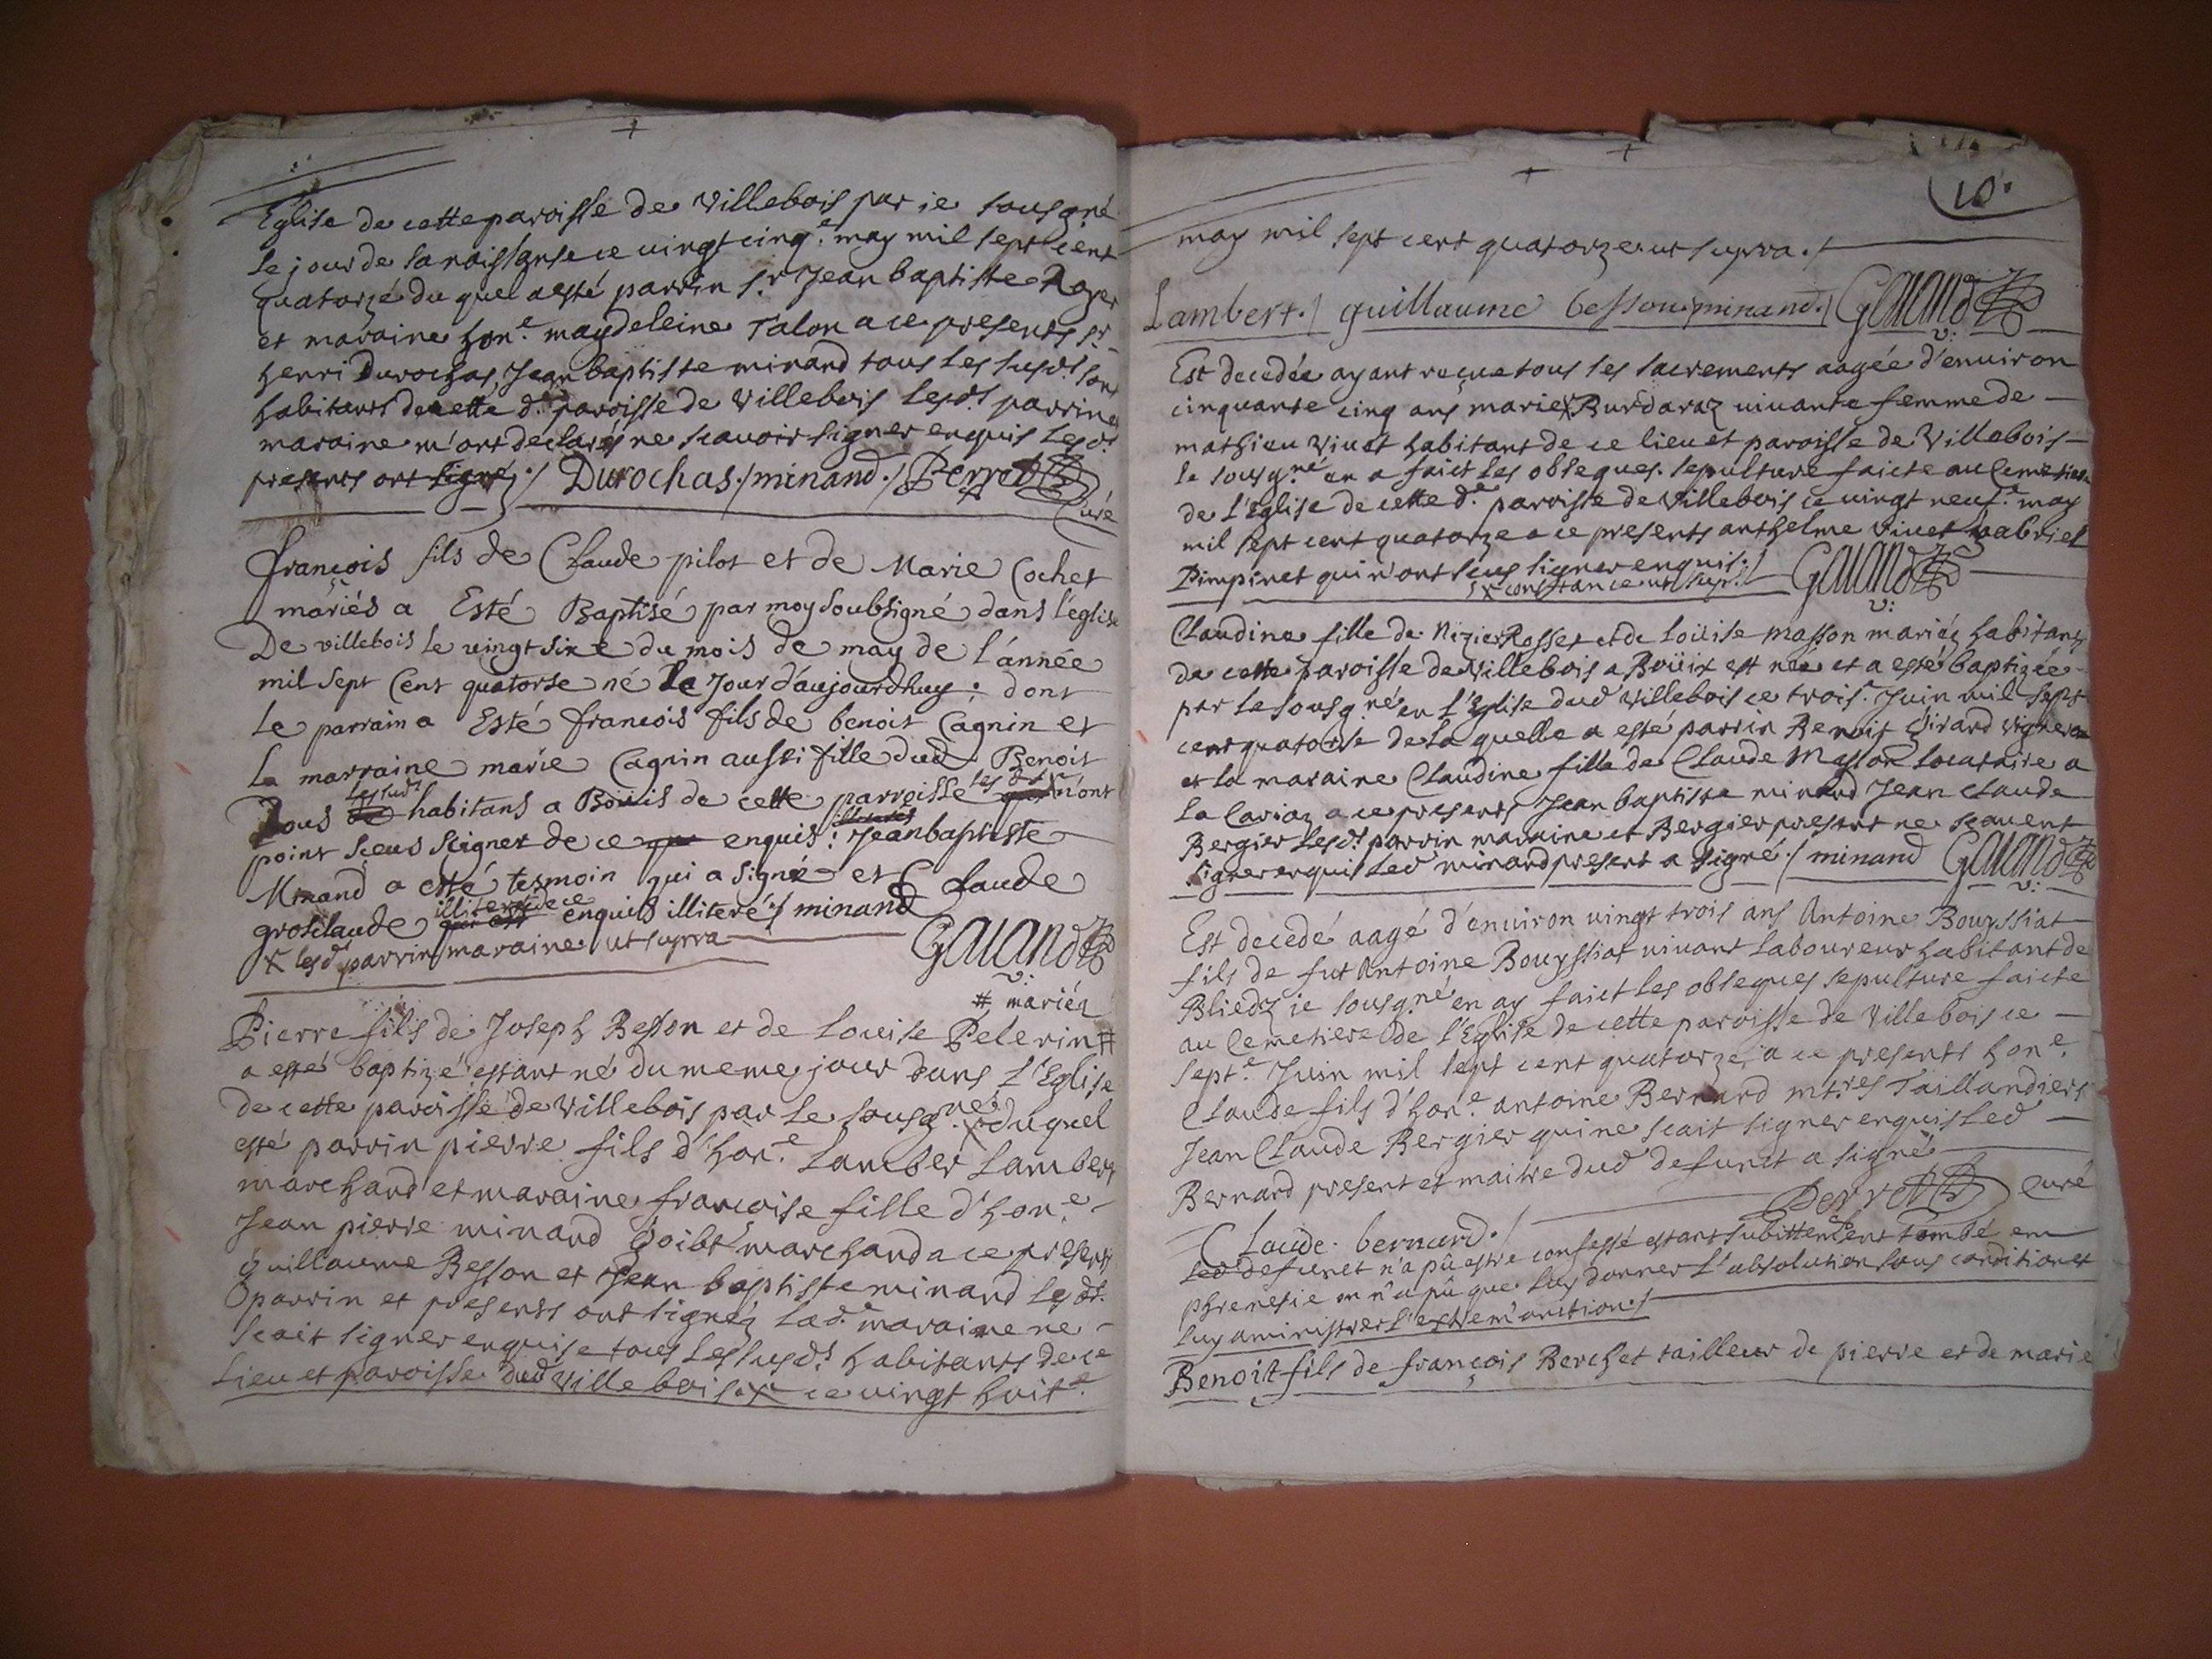 Eglise de cette paroisse de Villebois par ie sousgné
le jour de sa naissanse ce vingt cinq.e may mil sept cent
quatorze du quel a esté parrin s.r Jean baptiste Roger
et maraine hon.e magdeleine Talon a ce presents s.r
henri Durochas, Jean baptiste minand tous les susd.ts son
habitants de cette d.e paroisse de Villebois lesd.ts parrin
maraine m'ont declarés ne scavoir signer enquis lesd.ts
presents ont signé ./ Durochas ./ minand ./ Perret
Curé
françois fils de Claude pilot et de Marie Cochet
mariés a Esté Baptisé par moy soubsigné dans l'eglise
De villebois le vingt sixe du mois de may de l'année
mil sept Cent quatorse né le Jour d'aujourdhuy : dont
le parrain a Esté francois fils de benoit Cagnin et
la marraine marie Cagnin aussi fille dud. Benoit
Tous lessud.ts habitans a Boüis de cette parroisse les d.ts n'ont
point sceus seigner de ce enquis : illiterés Jean baptiste
Minand a esté tesmoin qui a signé et Claude
grosclaude illiteré de ce enquis illiteré ./ minand
x lesd.ts parrin maraine ut supra Galand
v:
# mariéz
Pierre fils de Joseph Besson et de Louise Pelerin #
a esté baptizé estant né du meme jour dans l'Eglise
de cette paroisse de Villebois par le sousgné x duquel
esté parrin pierre fils d'hon.e Lamber Lambert
marchand et maraine françoise fille d'hon.e
Jean pierre minand Goibt marchand a ce presents
guillaume Besson et Jean baptiste minand lesd.ts
parrin et presents ont signéz lad.e maraine ne
scait signer enquise tous les susd.ts habitants de ce
lieu et paroisse dud Villebois x ce vingt huit.e
10.
may mil sept cent quatorze ut supra ./
Lambert ./ guillaume besson minand ./ Galand
v:
Est decedée ayant reçue tous les sacrements aagée d'environ
cinquante cinq ans marie x Burdaraz vivante femme de
mathieu Vivet habitant de ce lieu et paroisse de Villebois
le sousg.né en a faict les obseques. sepulture faicte au Cemetiere
de l'Eglise de cette d.e paroisse de Villebois ce vingt neuf.e may
mil sept cent quatorze a ce presents anthelme Vivet gabriel
Pimpinet qui n'ont sceus signer enquis ./
x constance ut sup. / Galand
v:
Claudine fille de Nizier Rosset et de Loüise masson mariéz habitants
de cette paroisse de Villebois a Boüix est neé et a esté baptizée
par le sousg.né en l'Eglise dud Villebois ce trois.e Juin mil sept
cent quatorse de la quelle a esté parrin Benoit Girard vigneron
et la maraine Claudine fille de Claude Masson locataire a
la Cariaz a ce presents Jean baptiste minand Jean Claude
Bergier lesd.ts parrin maraine et Bergier present ne scavent
signer enquis led minand present a signé ./ minand Galand
v:
Est decedé aagé d'environ vingt trois ans Antoine Bouyssiat
fils de fut Antoine Bouyssiat vivant laboureur habitant de
Bliedz ie sousg.né en ay faict les obseques sepulture faicte
au Cemetiere de l'Eglise de cette paroisse de Villebois ce
sept.e Juin mil sept cent quatorze, a ce presents hon.e
Claude fils d'hon.e antoine Bernard mt.res Taillandiers
Jean Claude Bergier qui ne scait signer enquis led
Bernard present et maitre dud defunct a signé
Claude bernard ./ Perret Curé
led defunct n'a pû estre confessé estant subittement tombé en
phrenesie on n'a pû que luy donner l'absolution sous condition et
luy aministrer l'extrem'onction ./
Benoit fils de françois Berchet tailleur de pierre et de marie